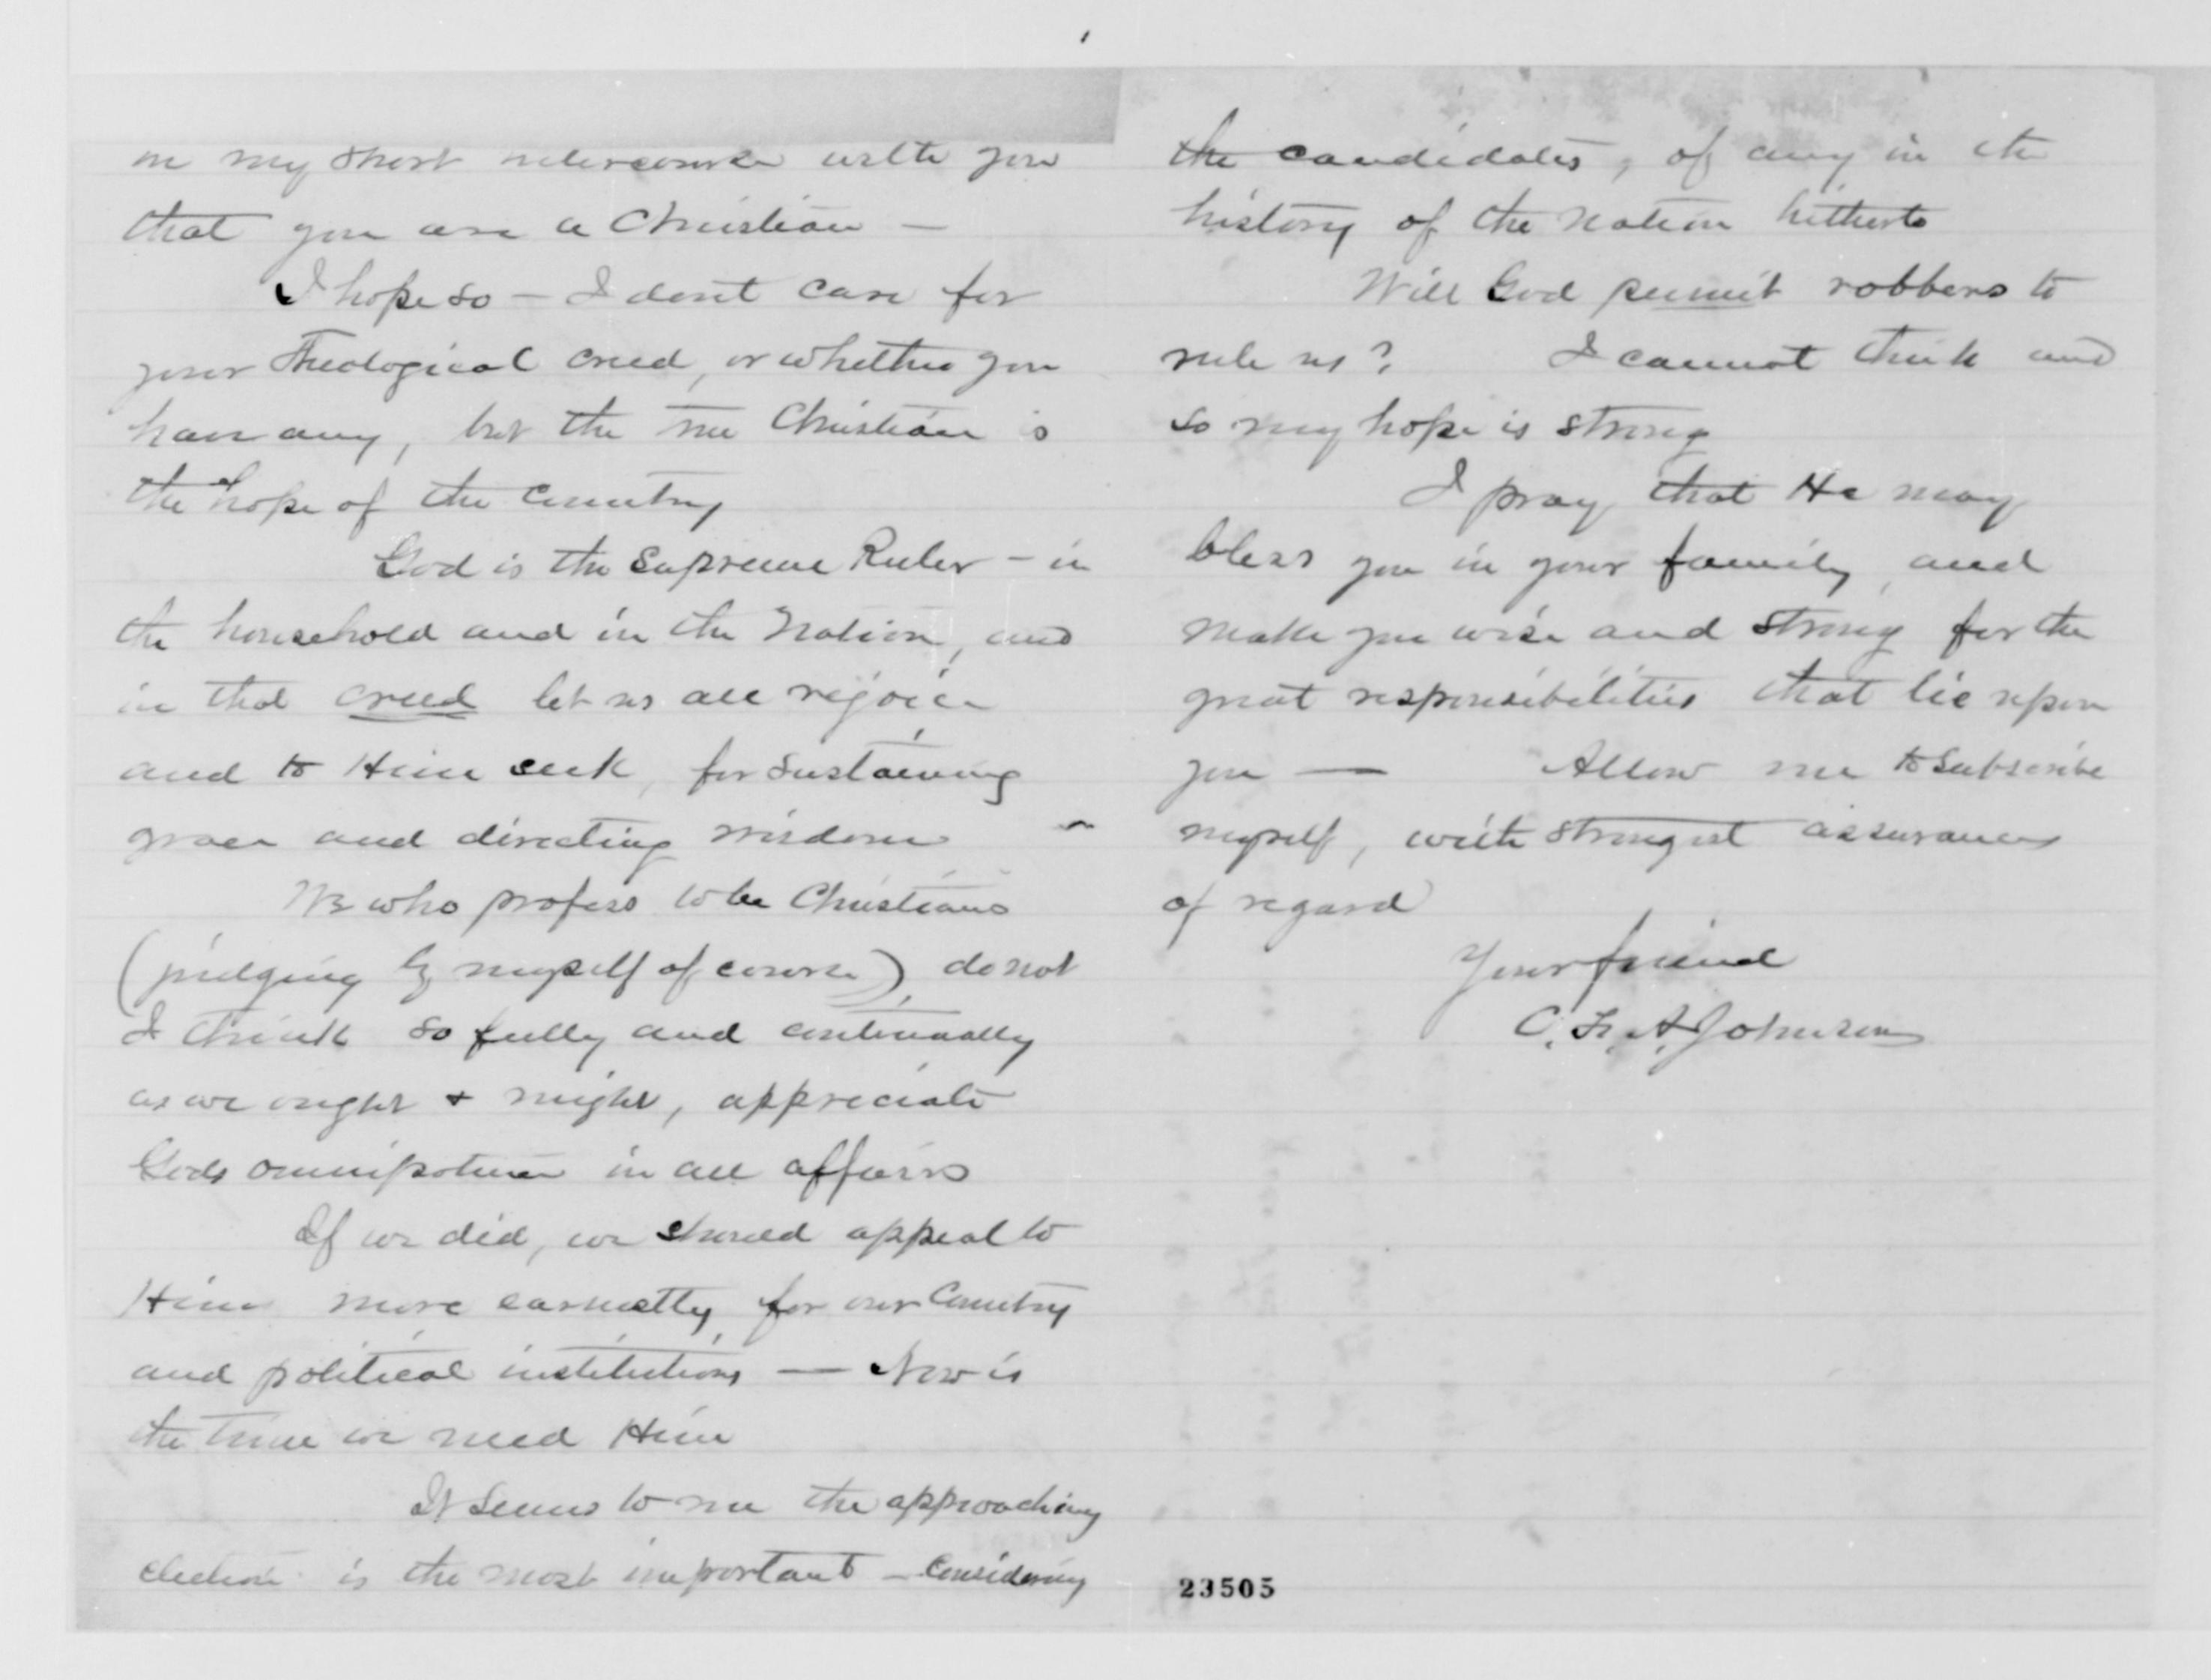 in my short intercourse with you
that you are a Christian —
I hope so — I dont care for
your Theological creed, or whether you
have any, but the true Christian is
the hope of the Country
God is the Supreme Ruler — in
the household and in the Nation, and
in that creed let us all rejoice
and to Him seek, for sustaining
grace and directing wisdom —
We who profess to be Christians
(judging by myself of course), do not
I think so fully and continually
as we ought & might, appreciate
Gods omnipotence in all affairs
If we did, we should appeal to
Him more earnestly for our Country
and political institutions — Now is
the time we need Him
It seems to me the approaching
election is the most important — considering
the candidates, of any in the
history of the Nation hitherto
Will God permit robbers to
rule us? I cannot think and
so my hope is strong
I pray that He may
bless you in your family, and
make you wise and strong for the
great responsibilities that lie upon
you — Allow me to subscribe
myself, with strongest assurances
of regard
Your friend
C. F. A. Johnson
23505